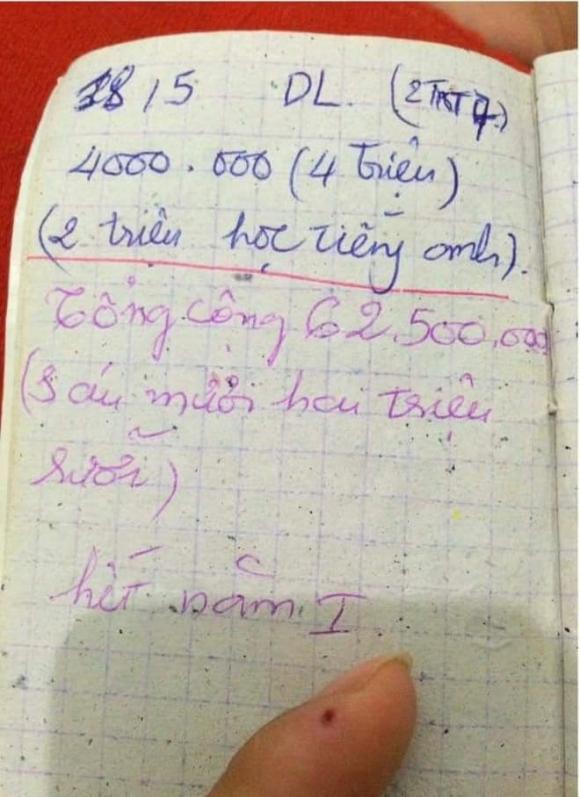 18/5 DL. (2
4000.000 (4 triệu)
(2 triệu học tiếng anh).
Tổng cộng 62.500.000
(Sáu mươi hai triệu
rưỡi)
hết năm I